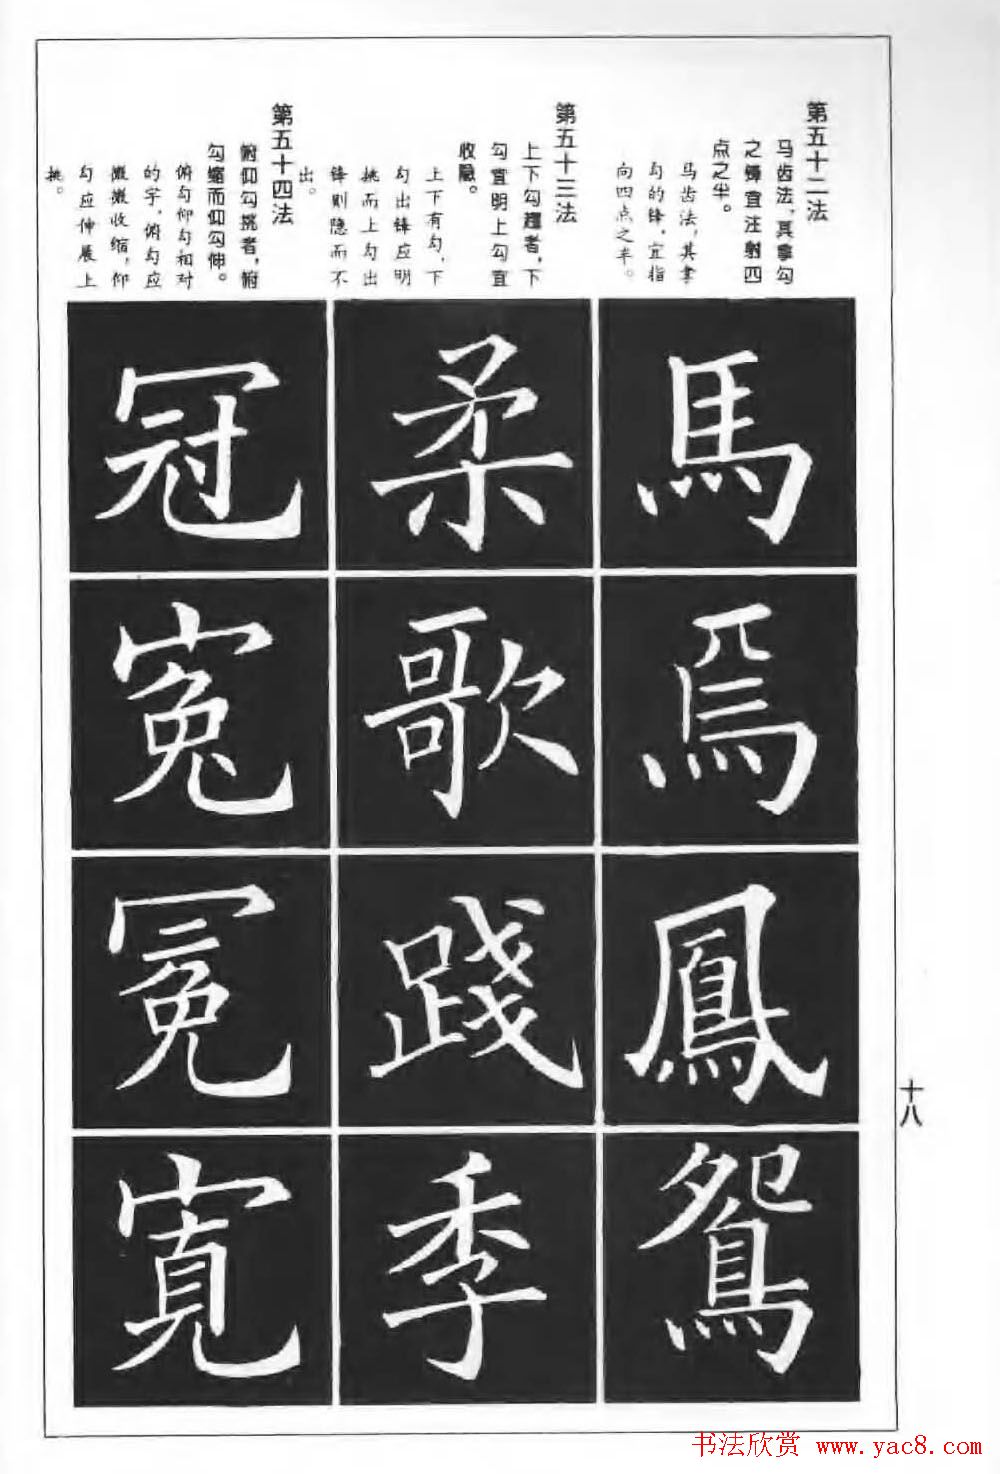 第五十二法
马齿法，其拿勾
之锋宜注射四
点之半。
马齿法，其拿
勾的锋，宜指
向四点之半。
馬
焉
鳳
鴛
第五十三法
上下勾趯者，下
勾宜明上勾宜
收隐。
上下有勾，下
勾出锋应明
挑而上勾出
锋则隐而不
出。
柔
歌
踐
季
第五十四法
俯仰勾挑者，俯
勾缩而仰勾伸。
俯勾仰勾相对
的字，俯勾应
微微收缩，仰
勾应伸展上
挑。
冠
冤
冕
寬
十八
书法欣赏 www.yac8.com